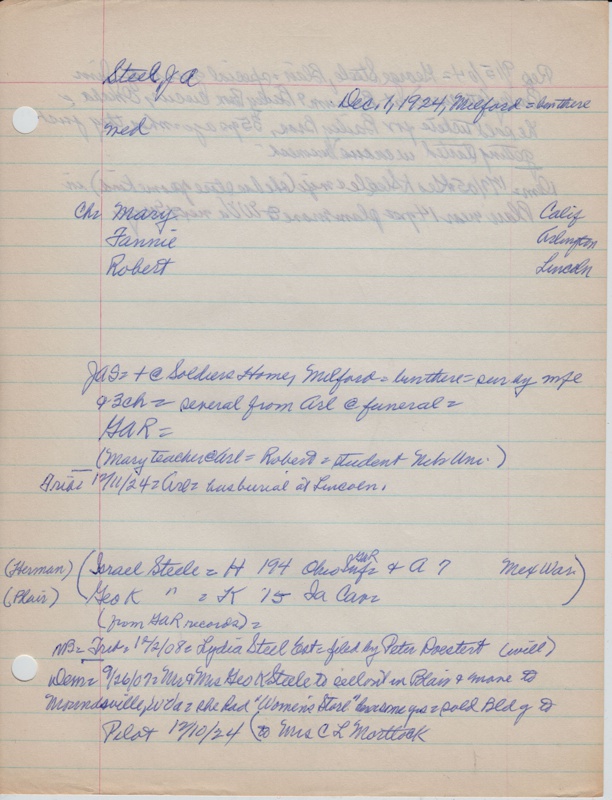 Steel, J A
Dec. 1, 1924, Milford = bur there
Wed
Chr Mary Calif
Fannie Arlington
Robert Lincoln
JaS = + @ Soldiers Home, Milford = bur there = sur by wife
& 3ch = several from Arl @ funeral =
GAR =
(Mary teacher @ Arl = Robert = student Neb Uni.)
12/11/24 = Arl = has burial at Lincoln.
(Herman) (Israel Steele = H 194 Ohio Inf = & A 7 Mex War)
GAR
(Blair) Geo K " = K 15 Ia Cav =
(from GAR records) =
NB = Trib = 12/2/08 = Lydia Steel Est = filed by Peter (will)
Dem = 9/26/07 = Mr & Mrs Geo K Steele to sell out in Blair & move to
Moundsville, W Va = she had "Women's Store" here some yrs = sold Bldg to
Pilot 12/10/24 (to Mrs C L Mortlock